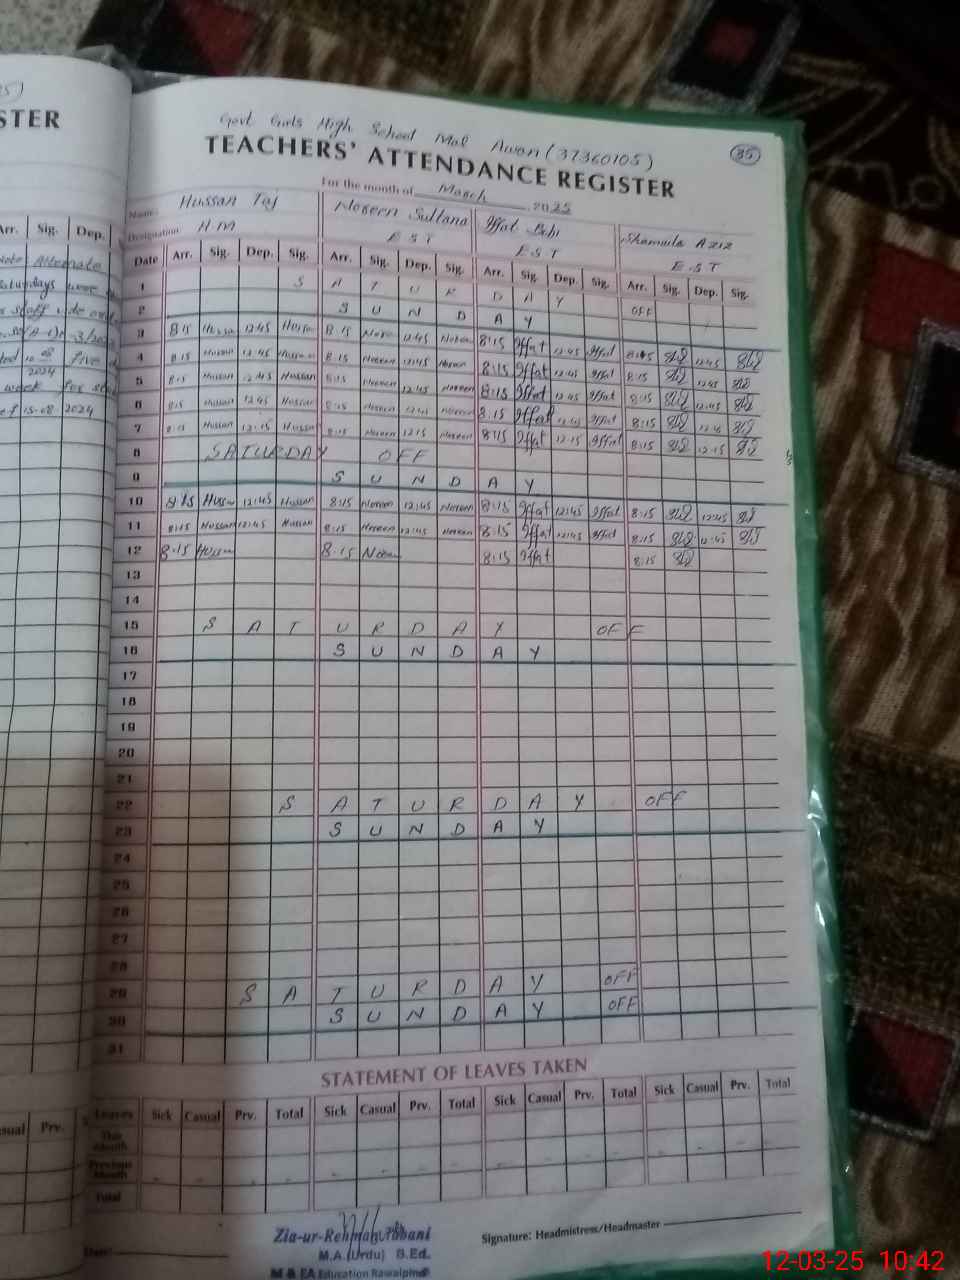 STER
Arr. Sig. Dep.
Note Alternate
Saturdays
staff
2024
week for
15-08-2024
Govt Girls High School Mal Awan (37360105)
35
TEACHERS' ATTENDANCE REGISTER
For the month of March 2025
Name: Hussan Taj Noreen Sultana Iffat Bibi Shamuila Aziz
Designation H.M E.S.T E.S.T E.S.T
Date Arr. Sig. Dep. Sig. Arr. Sig. Dep. Sig. Arr. Sig. Dep. Sig. Arr. Sig. Dep. Sig.
1 S A T U R D A Y OFF
2 S U N D A Y
3 8:15 Hussan 12:45 Hussan 8:15 Noreen 12:45 Noreen 8:15 Iffat 12:45 Iffat 8:15 12:45
4 8:15 Hussan 12:45 Hussan 8:15 Noreen 12:45 Noreen 8:15 Iffat 12:45 Iffat 8:15 12:45
5 8:15 Hussan 12:45 Hussan 8:15 Noreen 12:45 Noreen 8:15 Iffat 12:45 Iffat 8:15 12:45
6 8:15 Hussan 12:45 Hussan 8:15 Noreen 12:45 Noreen 8:15 Iffat 12:45 Iffat 8:15 12:45
7 8:15 Hussan 12:15 Hussan 8:15 Noreen 12:15 Noreen 8:15 Iffat 12:15 Iffat 8:15 12:15
8 SATURDAY OFF
9 S U N D A Y
10 8:15 Hussan 12:45 Hussan 8:15 Noreen 12:45 Noreen 8:15 Iffat 12:45 Iffat 8:15 12:45
11 8:15 Hussan 12:45 Hussan 8:15 Noreen 12:45 Noreen 8:15 Iffat 12:45 Iffat 8:15 12:45
12 8:15 Hussan 8:15 Noreen 8:15 Iffat 8:15
13
14
15 S A T U R D A Y OFF
16 S U N D A Y
17
18
19
20
21
22 S A T U R D A Y OFF
23 S U N D A Y
24
25
26
27
28
29 S A T U R D A Y OFF
30 S U N D A Y OFF
31
STATEMENT OF LEAVES TAKEN
Leaves Sick Casual Prv. Total Sick Casual Prv. Total Sick Casual Prv. Total Sick Casual Prv. Total
This Month
Previous Month
Total
Prv.
Zia-ur-Rehman
M.A. (Urdu) B.Ed.
M & EA Education Rawalpindi
Date:
Signature: Headmistress/Headmaster
12-03-25 10:42